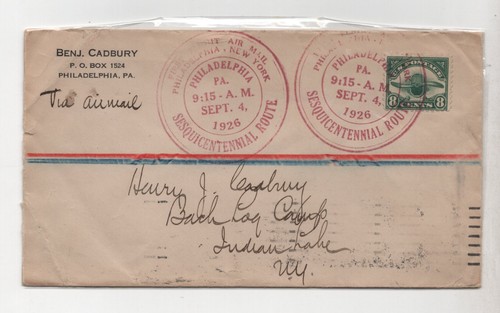 BENJ. CADBURY
P. O. BOX 1524
PHILADELPHIA, PA.
Via airmail
AIR MAIL
PHILADELPHIA - NEW YORK
PHILADELPHIA
PA.
9:15 - A. M.
SEPT. 4,
1926
SESQUICENTENNIAL ROUTE
PHILADELPHIA
PA.
9:15 - A. M.
SEPT. 4,
1926
SESQUICENTENNIAL ROUTE
U.S. POSTAGE
8 CENTS 8
Henry J. Cadbury
Back Log Camp
Indian Lake
N.Y.